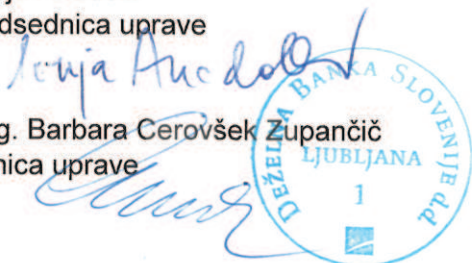 dsednica uprave
g. Barbara Cerovšek Zupančič
nica uprave
DEŽELNA BANKA SLOVENIJE d.d.
LJUBLJANA
1